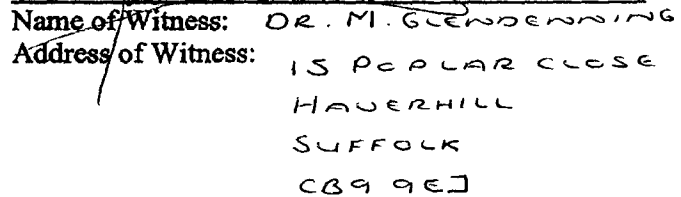 Name of Witness: DR. M. GLENDENNING
Address of Witness: 15 POPLAR CLOSE
HAVERHILL
SUFFOLK
CB9 9EJ